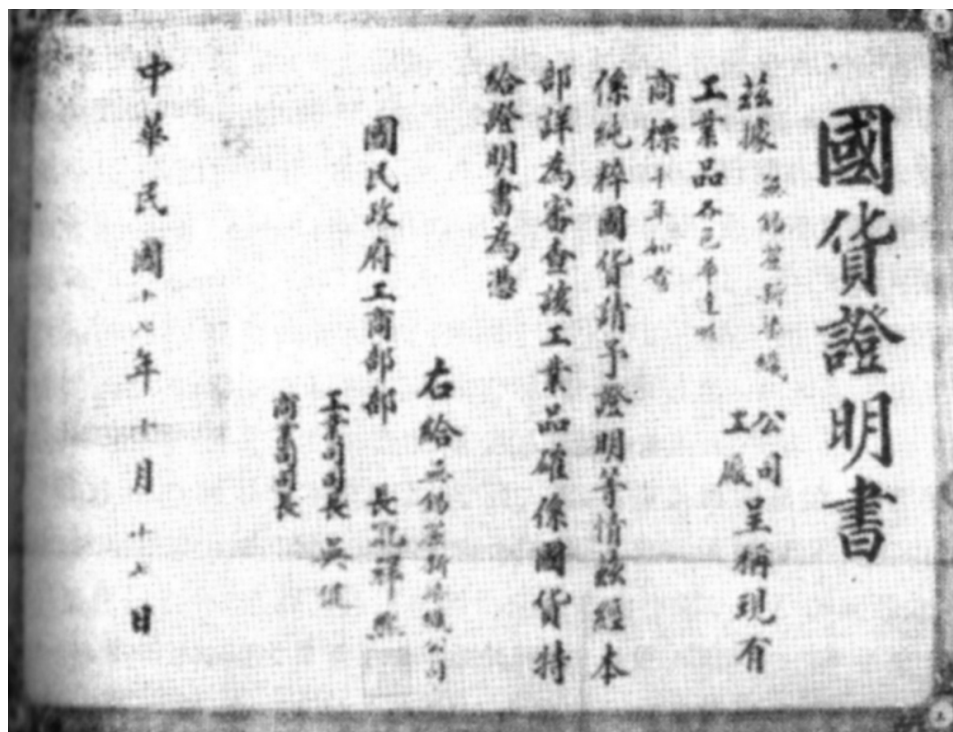 國貨證明書
茲據無錫麗新染織公司工廠呈稱現有
工業品各色布疋
商標千年如意
係純粹國貨請予證明等情玆經本
部詳為審查該工業品確係國貨特
給證明書為憑
右給無錫麗新染織公司
國民政府工商部部長孔祥熙
工業司司長吳健
商業司司長
中華民國十七年十月十七日